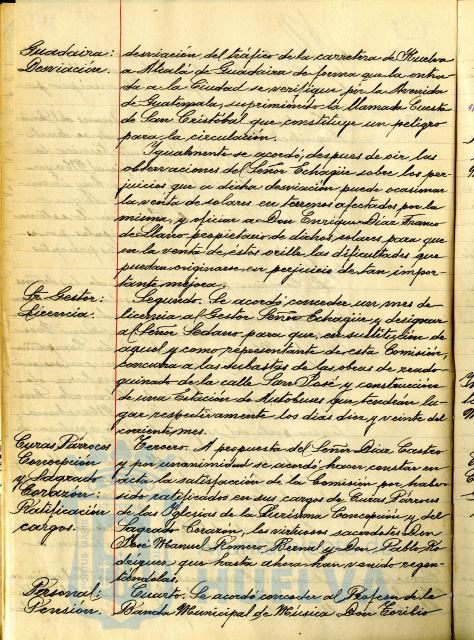 Guadaira: desviación del tráfico de la carretera de Huelva
Desviación. a Alcalá de Guadaira de forma que la entra-
da a la Ciudad se verifique por la Avenida
de Guatemala, suprimiendo la llamada Cuesta
de San Cristóbal que constituye un peligro
para la circulación.
Igualmente se acordó, despues de oir las
observaciones del Señor Echagüe sobre los per-
juicios que a dicha desviación puede ocasionar
la venta de solares en terrenos afectados por la
misma, y oficiar a Don Enrique Diaz Franco
de Llano propietario de dichos solares para que
en la venta de éstos orille las dificultades que
puedan originarse en perjuicio de tan impor-
tante mejora.
Sr. Gestor: Segundo. Se acordó conceder un mes de
Licencia. licencia al Gestor Señor Echagüe y designar
al Señor Sedano para que, en sustitución de
aquel y como representante de esta Comisión,
concurra a las subastas de las obras de reado-
quinado de la calle San José y construcción
de una Estación de Autobuses que tendrán lu-
gar respectivamente los dias diez y veinte del
corriente mes.
Curas Párrocos Tercero. A propuesta del Señor Diaz Castro
Concepción y por unanimidad se acordó hacer constar en
y Sagrado acta la satisfacción de la Comisión por haber
Corazón: sido ratificados en sus cargos de Curas Párrocos
Ratificación de las Iglesias de la Purisima Concepción y del
cargos. Sagrado Corazón, los virtuosos sacerdotes Don
José Manuel Romero Bernal y Don Pablo Ro-
driguez que hasta ahora han venido regen-
tándolas.
Personal: Cuarto. Se acordó conceder al Profesor de la
Pensión. Banda Municipal de Música Don Cecilio
HUELVA